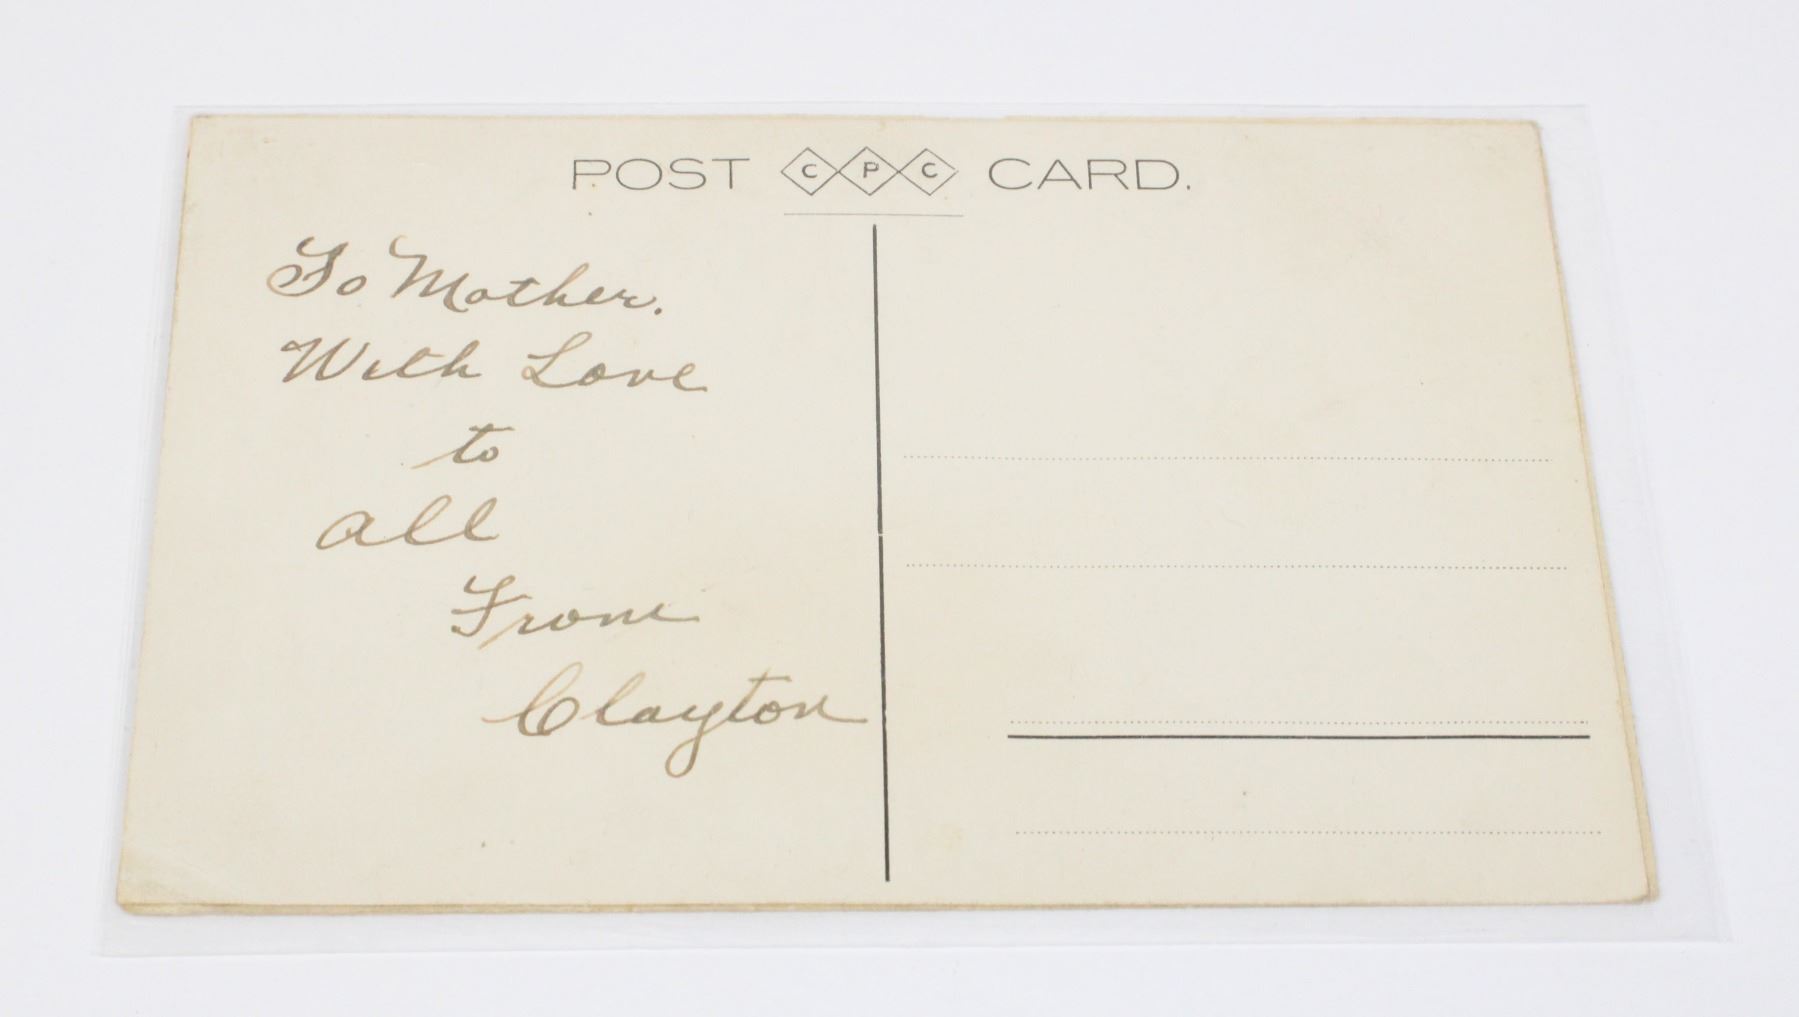 POST C P C CARD.
To Mother.
With Love
to
all
From
Clayton